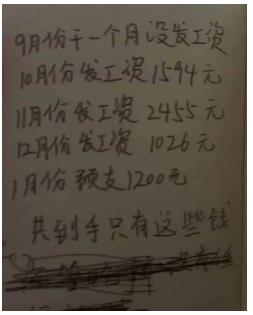 9月份干一个月没发工资
10月份发工资1594元
11月份发工资2455元
12月份发工资1026元
1月份预支1200元.
共到手只有这些钱